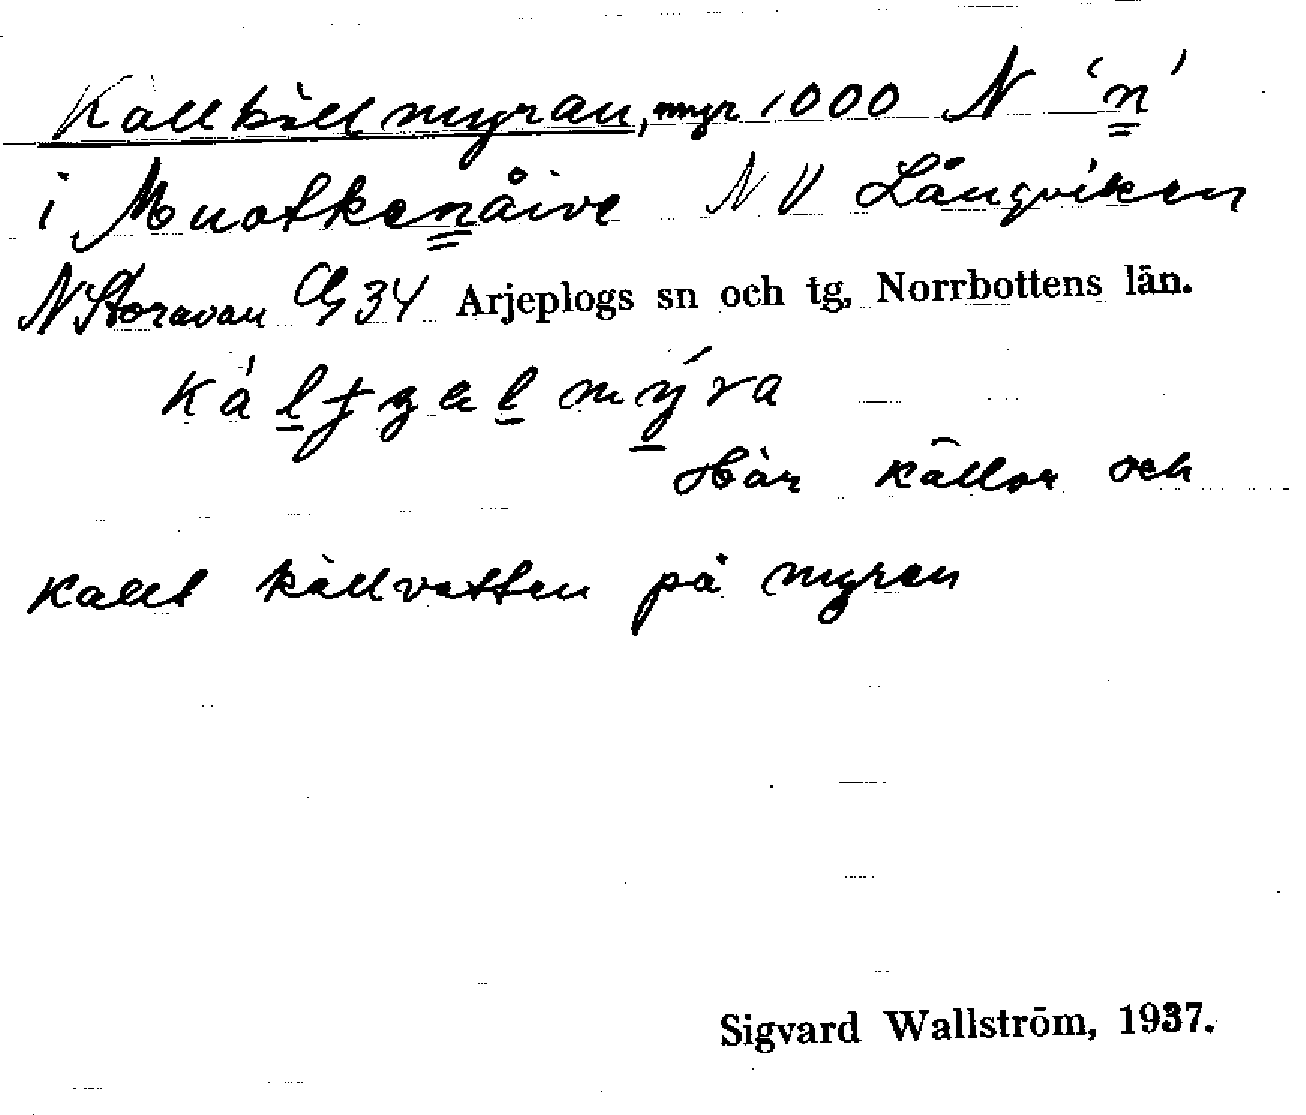 Kallkällmyran, myr 1000 N 'n'
i Muotkenåive NV Långviken
N Storavan Cg 34 Arjeplogs sn och tg, Norrbottens län.
Här källor och
kallt källvatten på myren
Sigvard Wallström, 1937.